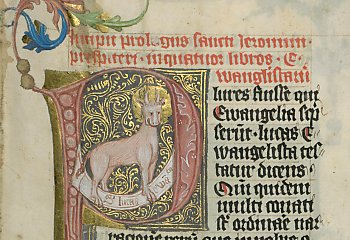 Incipit prologus sancti Jeronimi
presbiteri in quatuor libros E
wanglistaru
lures fuisse qui
Ewangelia scrip
serut lucas E
wangelista tes
tatur dicens
Qm quidem
multi conati
st ordinae nar